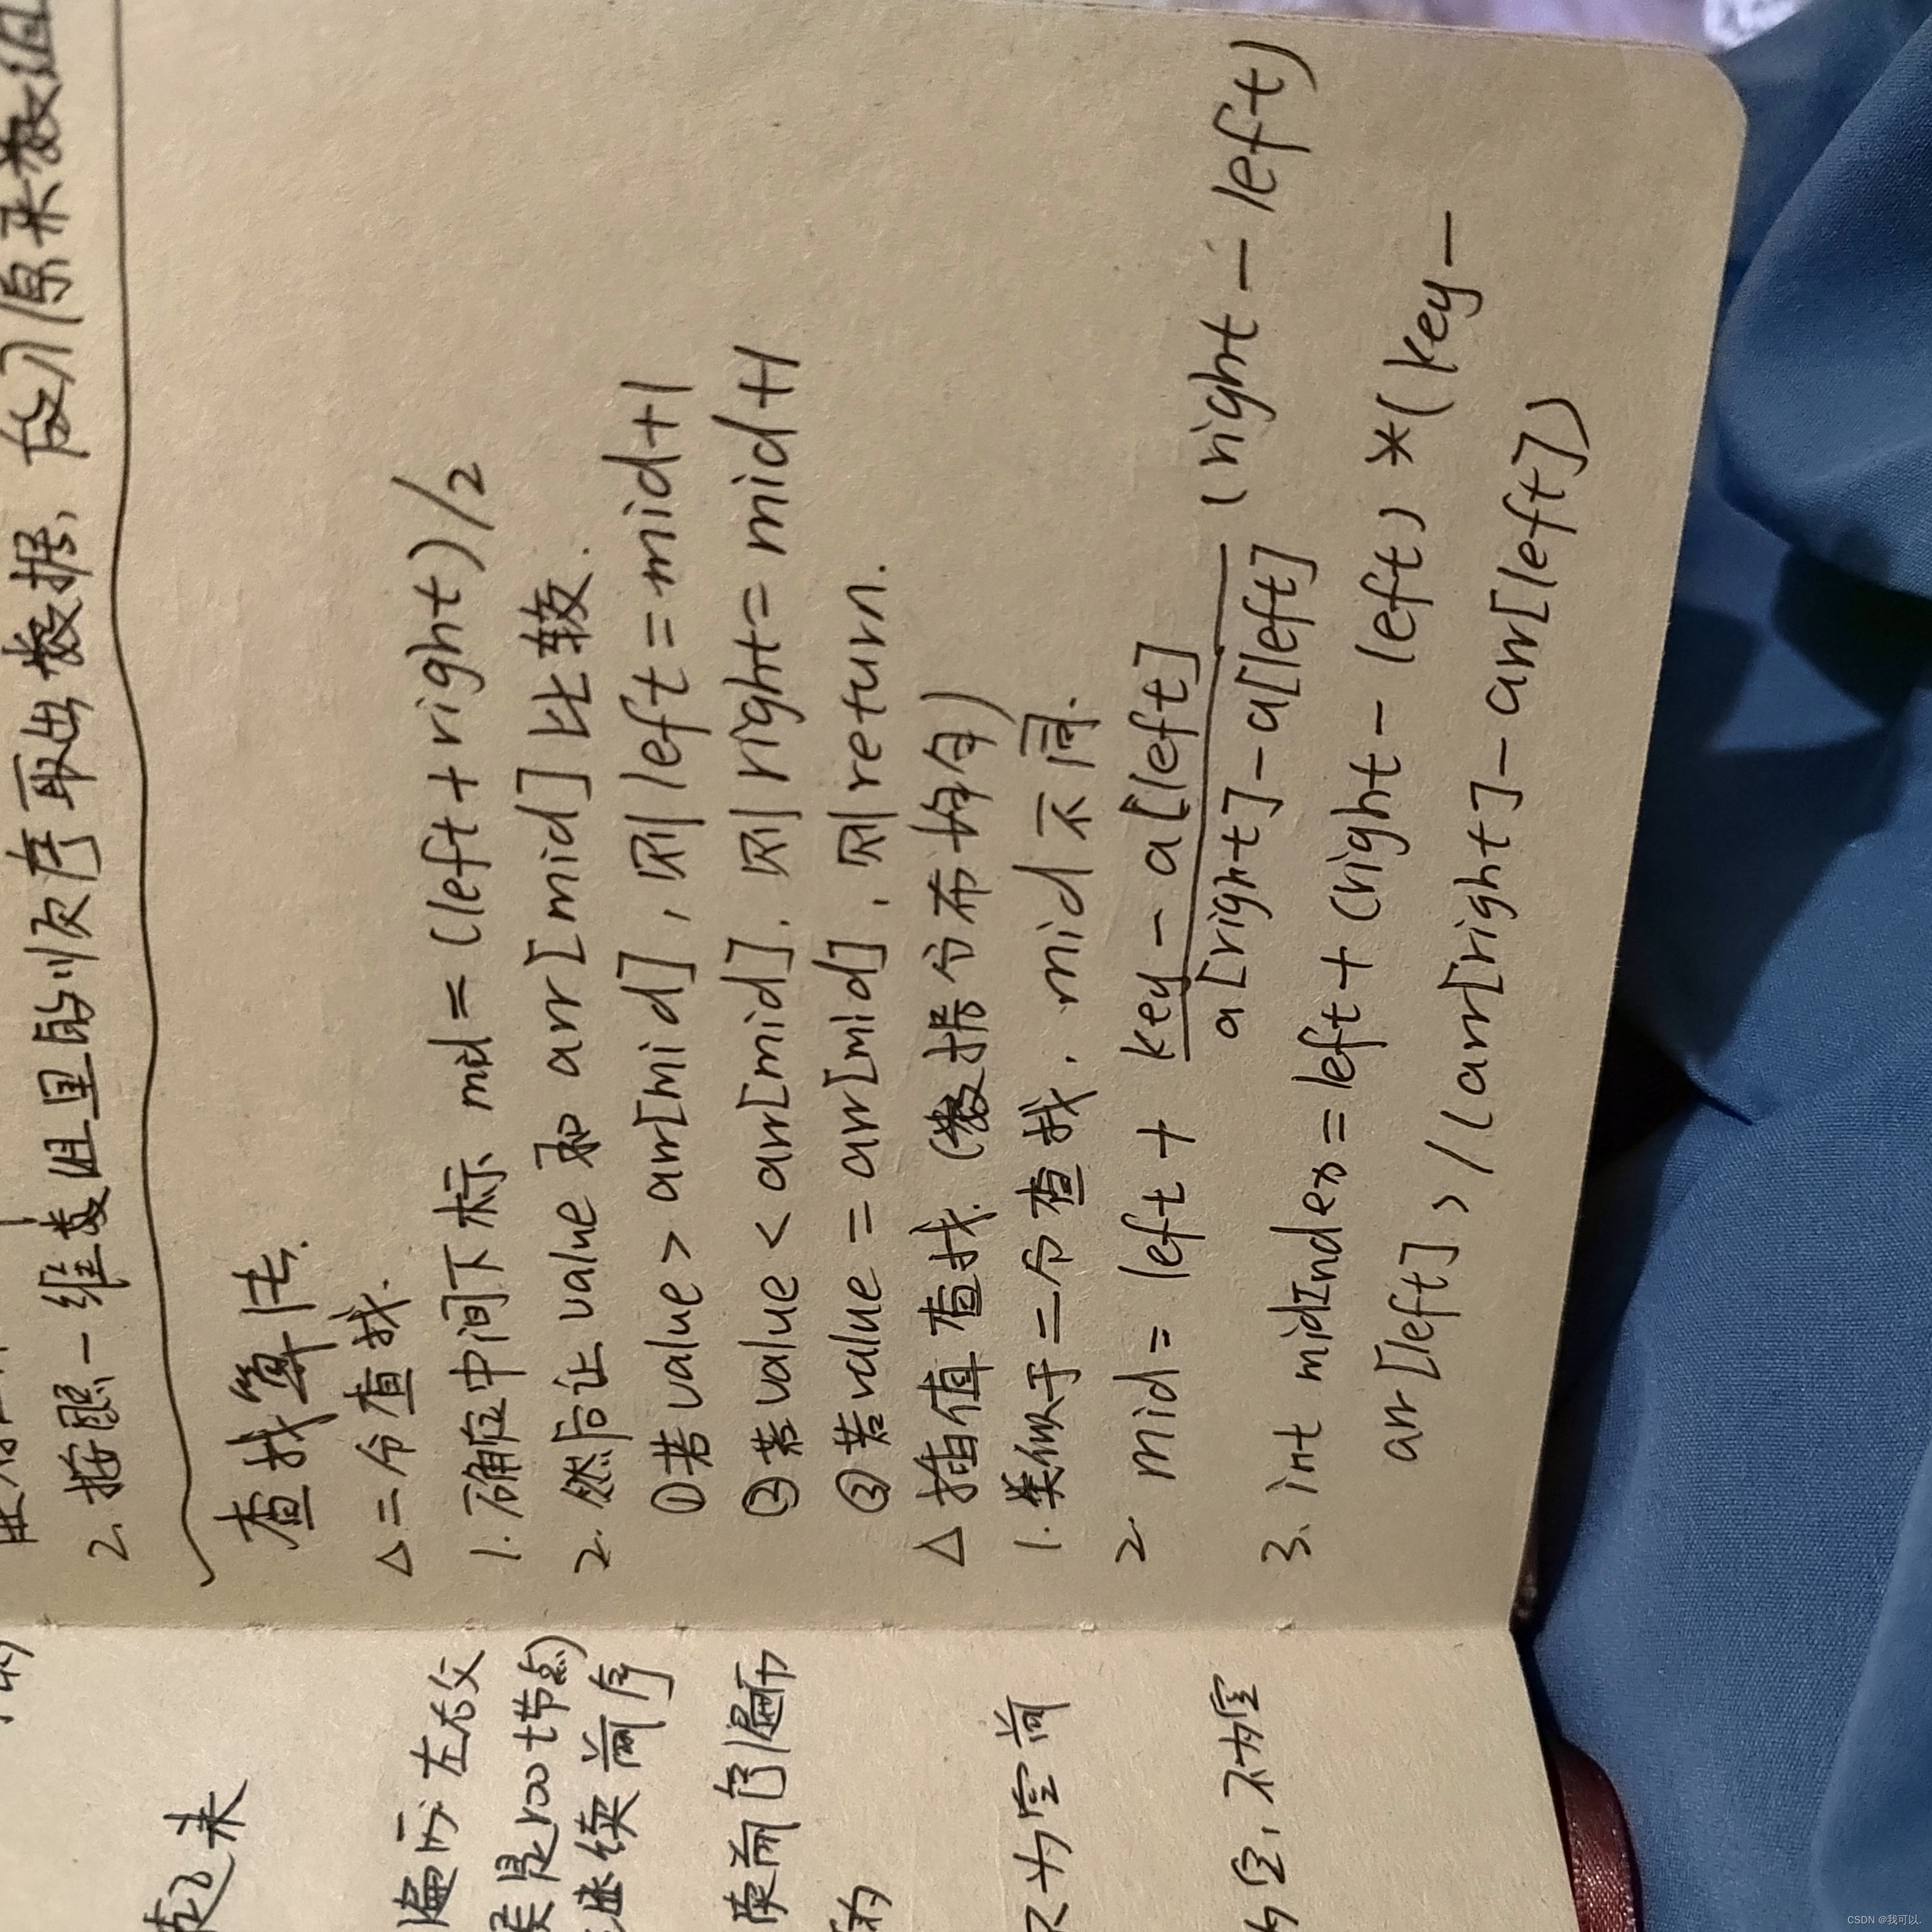 2. 按照一维数组里的顺序取出数据, 放入原来数组
查找算法.
△二分查找.
1. 确定中间下标 mid = (left + right) / 2
2. 然后让 value 和 arr[mid] 比较.
①若 value > arr[mid], 则 left = mid+1
②若 value < arr[mid], 则 right = mid+1
③若 value = arr[mid], 则 return.
△插值查找. (数据分布均匀)
1. 类似于二分查找, mid 不同.
2. mid = left + key - a[left] / a[right] - a[left] (right - left)
3. int midIndex = left + (right - left) * (key -
arr[left]) / (arr[right] - arr[left])
起来
遍历. 左右父
是root节点)
继续前序
前序遍历
为空前
空, 不为空
CSDN @我可以.